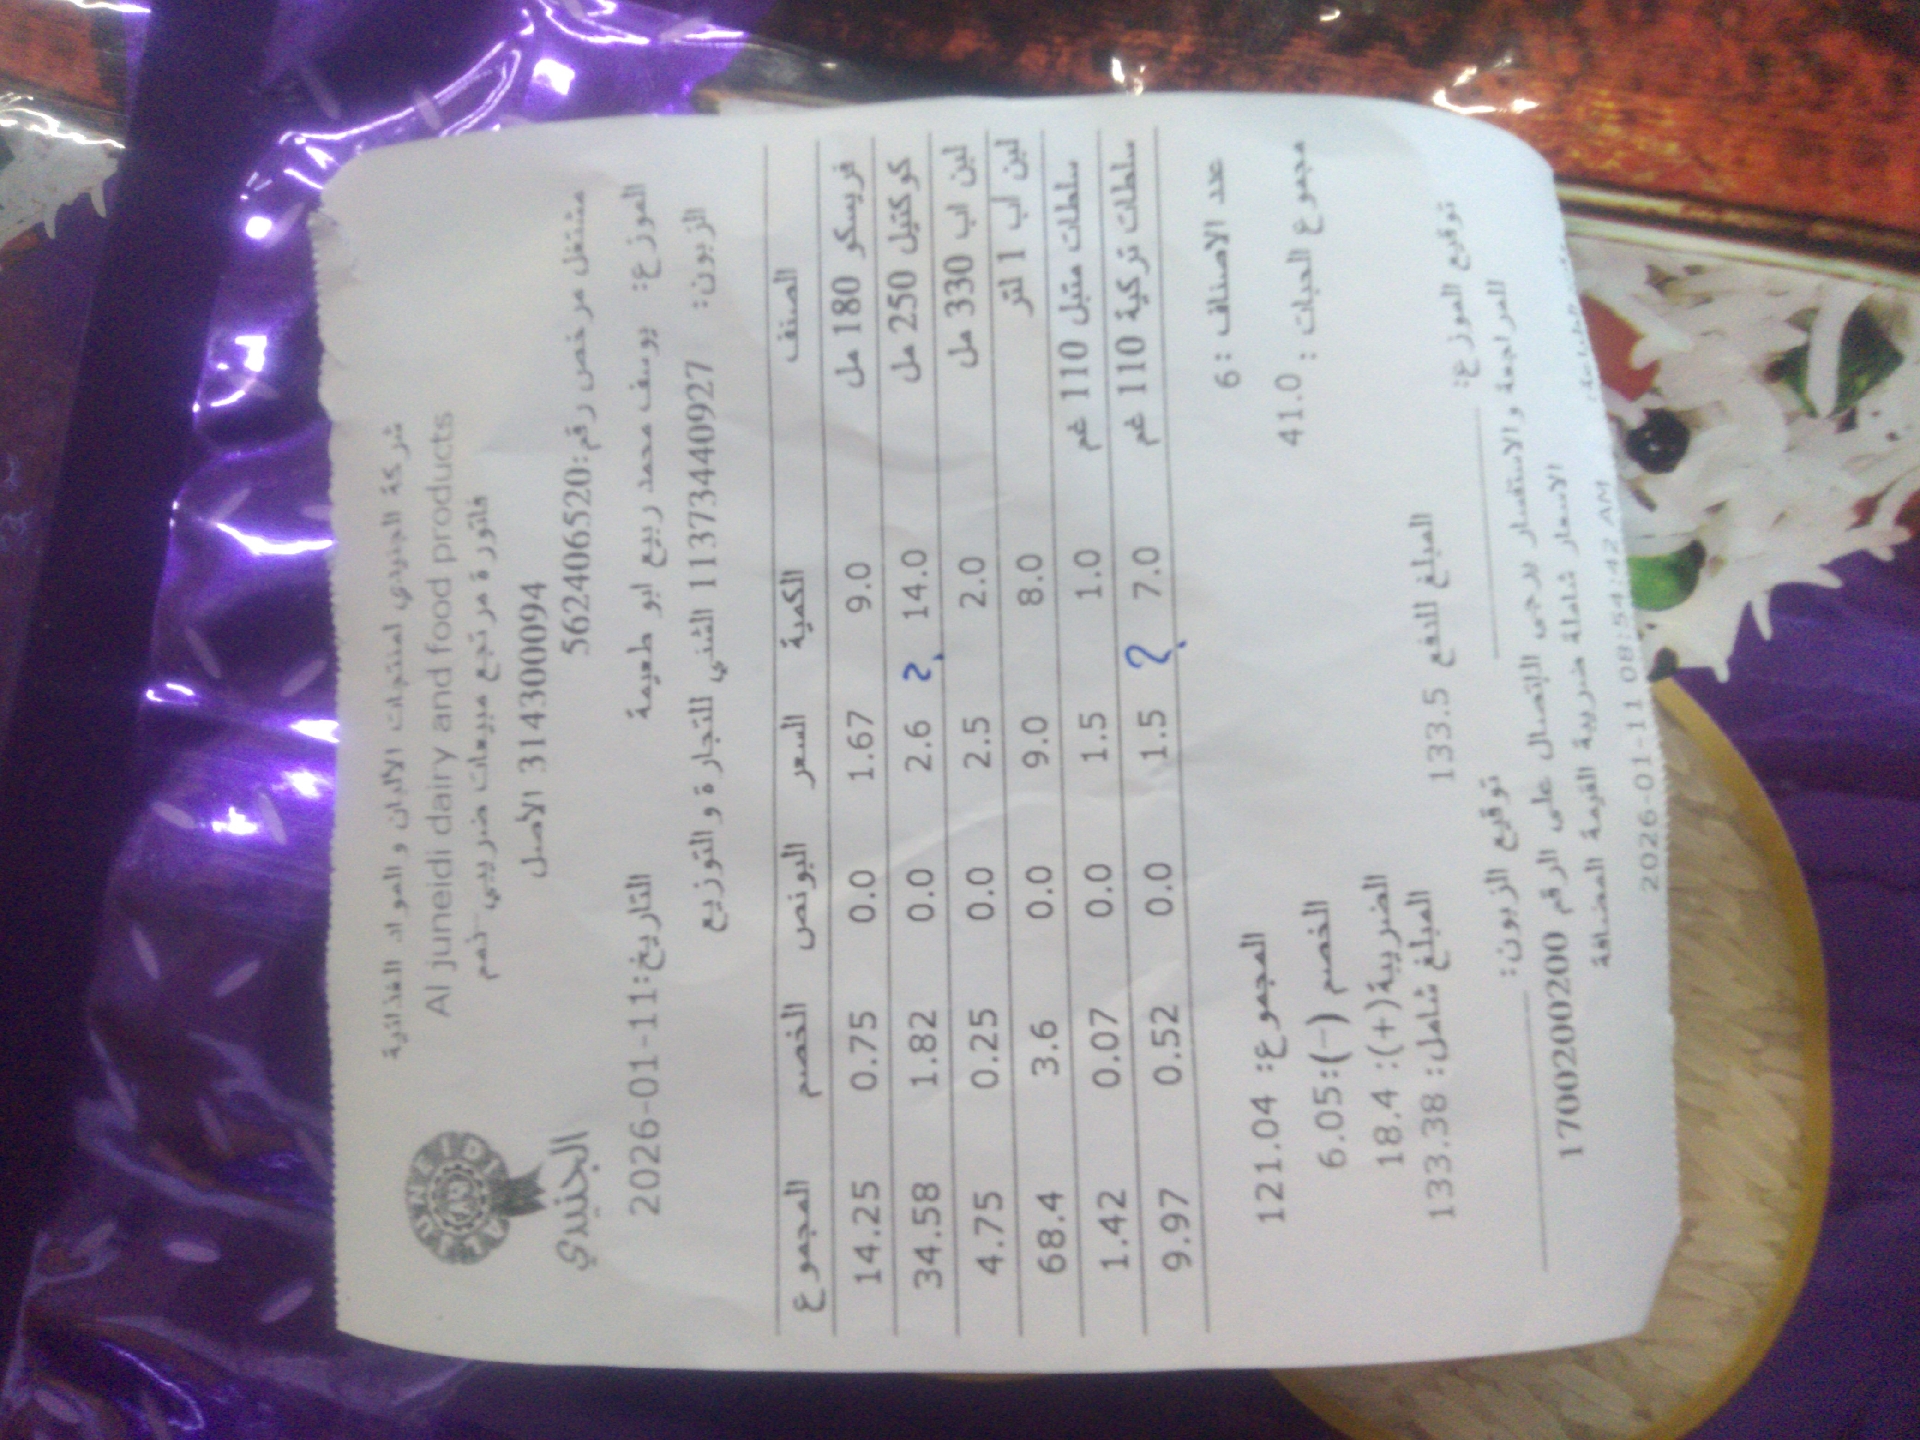 شركة الجنيدي لمنتجات الالبان و المواد الغذائية
Al juneidi dairy and food products
فاتورة مرتجع مبيعات ضريبي-ذمم
314300094 الاصل
الجنيدي
مشتغل مرخص رقم:562406520
الموزع: يوسف محمد ربيع ابو طعيمة
التاريخ:2026-01-11
الزبون: 1137344092 الشني للتجارة و التوزيع
الصنف الكمية السعر البونص الخصم المجموع
فريسكو 180 مل 9.0 1.67 0.0 0.75 14.25
كوكتيل 250 مل 14.0 ? 2.6 0.0 1.82 34.58
لبن اب 330 مل 2.0 2.5 0.0 0.25 4.75
لبن اب 1 لتر 8.0 9.0 0.0 3.6 68.4
سلطات متبل 110 غم 1.0 1.5 0.0 0.07 1.42
سلطات تركية 110 غم 7.0 ? 1.5 0.0 0.52 9.97
عدد الاصناف :6
المجموع: 121.04
مجموع الحبات : 41.0
الخصم (-):6.05
الضريبة(+): 18.4
المبلغ شامل: 133.38
المبلغ للدفع 133.5
توقيع الموزع:
توقيع الزبون:
للمراجعة والاستفسار يرجى الإتصال على الرقم 1700200200
الاسعار شاملة ضريبة القيمة المضافة
2026-01-11 08:54:42 AM